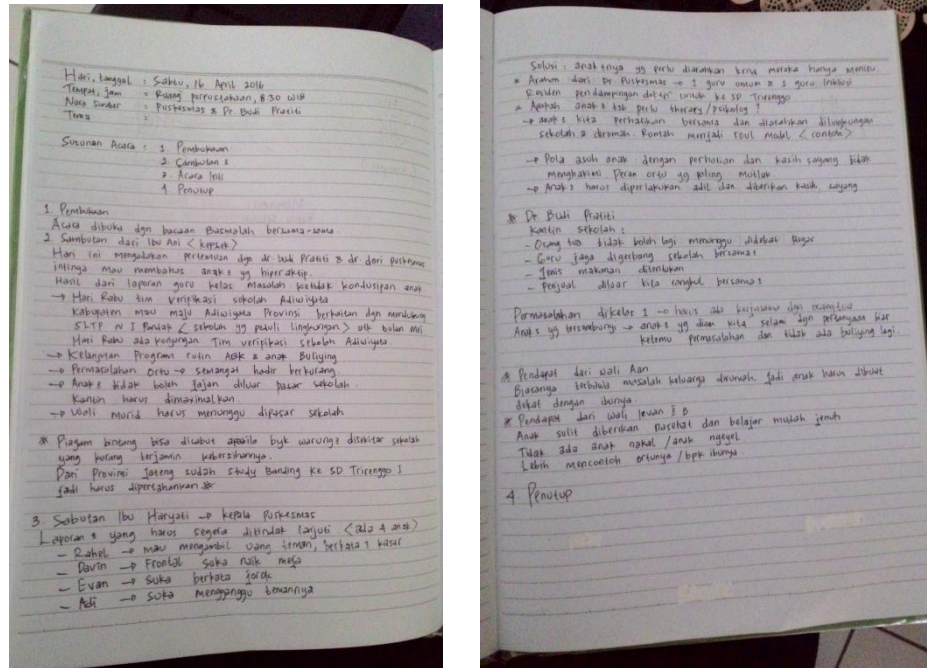 Hari, tanggal : Sabtu, 16 April 2016
Tempat, jam : Ruang perpustakaan, 8.30 WIB
Nara Sumber : Puskesmas & Dr. Budi Pratiti
Tema :
Susunan Acara : 1. Pembukaan
2. Sambutan 2
3. Acara Inti
4. Penutup
1. Pembukaan
Acara dibuka dgn bacaan Basmalah bersama-sama.
2. Sambutan dari Ibu Ani < kepsek >
Hari ini mengadakan pertemuan dgn dr budi Pratiti & dr dari puskesmas
intinya mau membahas anak2 yg hiperaktip.
Hasil dari laporan guru kelas masalah ketidak kondusipan anak
→ Hari Rabu tim verifikasi sekolah Adiwiyata
Kabupaten mau maju Adiwiyata Provinsi berkaitan dgn mendukung
SLTP N 1 Pandak < sekolah yg peduli lingkungan > utk bulan Mei
Hari Rabu ada kunjungan Tim verifikasi sekolah Adiwiyata.
→ Kelanjutan Program rutin ABK & anak Buliying
→ Permasalahan Ortu → semangat hadir berkurang.
→ Anak2 tidak boleh jajan diluar pagar sekolah.
Kantin harus dimaximalkan.
→ Wali Murid harus menunggu dipagar sekolah
* Piagam bintang bisa dicabut apabila byk warung2 disekitar sekolah
yang kurang terjamin kebersihannya.
Dari Provinsi Jateng sudah study Banding ke SD Trirenggo 1
jadi harus dipertahankan
3. Sabutan Ibu Haryati → kepala Puskesmas
Laporan2 yang harus segera ditindak lanjuti < ada 4 anak >
- Rahel → mau mengambil uang teman, berkata2 kasar
- Davin → Frontal suka naik meja
- Evan → suka berkata jorok
- Adi → suka mengganggu temannya
Solusi : anak2nya yg perlu diarahkan krna mereka hanya meniru
* Arahan dari Dr Puskesmas → 1 guru umum & 1 guru Inklusi
Residen pendampingan dokter untuk ke SD Trirenggo
* Apakah anak2 tsb perlu therapy / psikolog ?
→ anak2 kita perhatikan bersama dan diarahkan dilingkungan
sekolah & dirumah. Rumah menjadi roul model < contoh >
→ Pola asuh anak dengan perhatian dan kasih sayang tidak
menghakimi Peran ortu yg paling Mutlak
→ Anak2 harus diperlakukan adil dan diberikan kasih sayang
* Dr Budi Pratiti
Kantin sekolah :
- Orang tua tidak boleh lagi menunggu didekat pagar
- Guru jaga digerbang sekolah bersama2
- Jenis makanan ditentukan
- Penjual diluar kita rangkul bersama2
Permasalahan dikelas 1 → harus ada kerjasama dgn orangtua
Anak2 yg tersembunyi → anak2 yg diam kita selami dgn pertanyaan biar
ketemu permasalahan dan tidak ada buliying lagi.
* Pendapat dari wali Aan
Biasanya terbawa masalah keluarga dirumah, jadi anak harus dibuat
dekat dengan ibunya.
* Pendapat dari wali Ievan I B
Anak sulit diberikan nasehat dan belajar mudah jenuh
Tidak ada anak nakal / anak ngeyel
Lebih mencontoh ortunya / bpk ibunya
4. Penutup